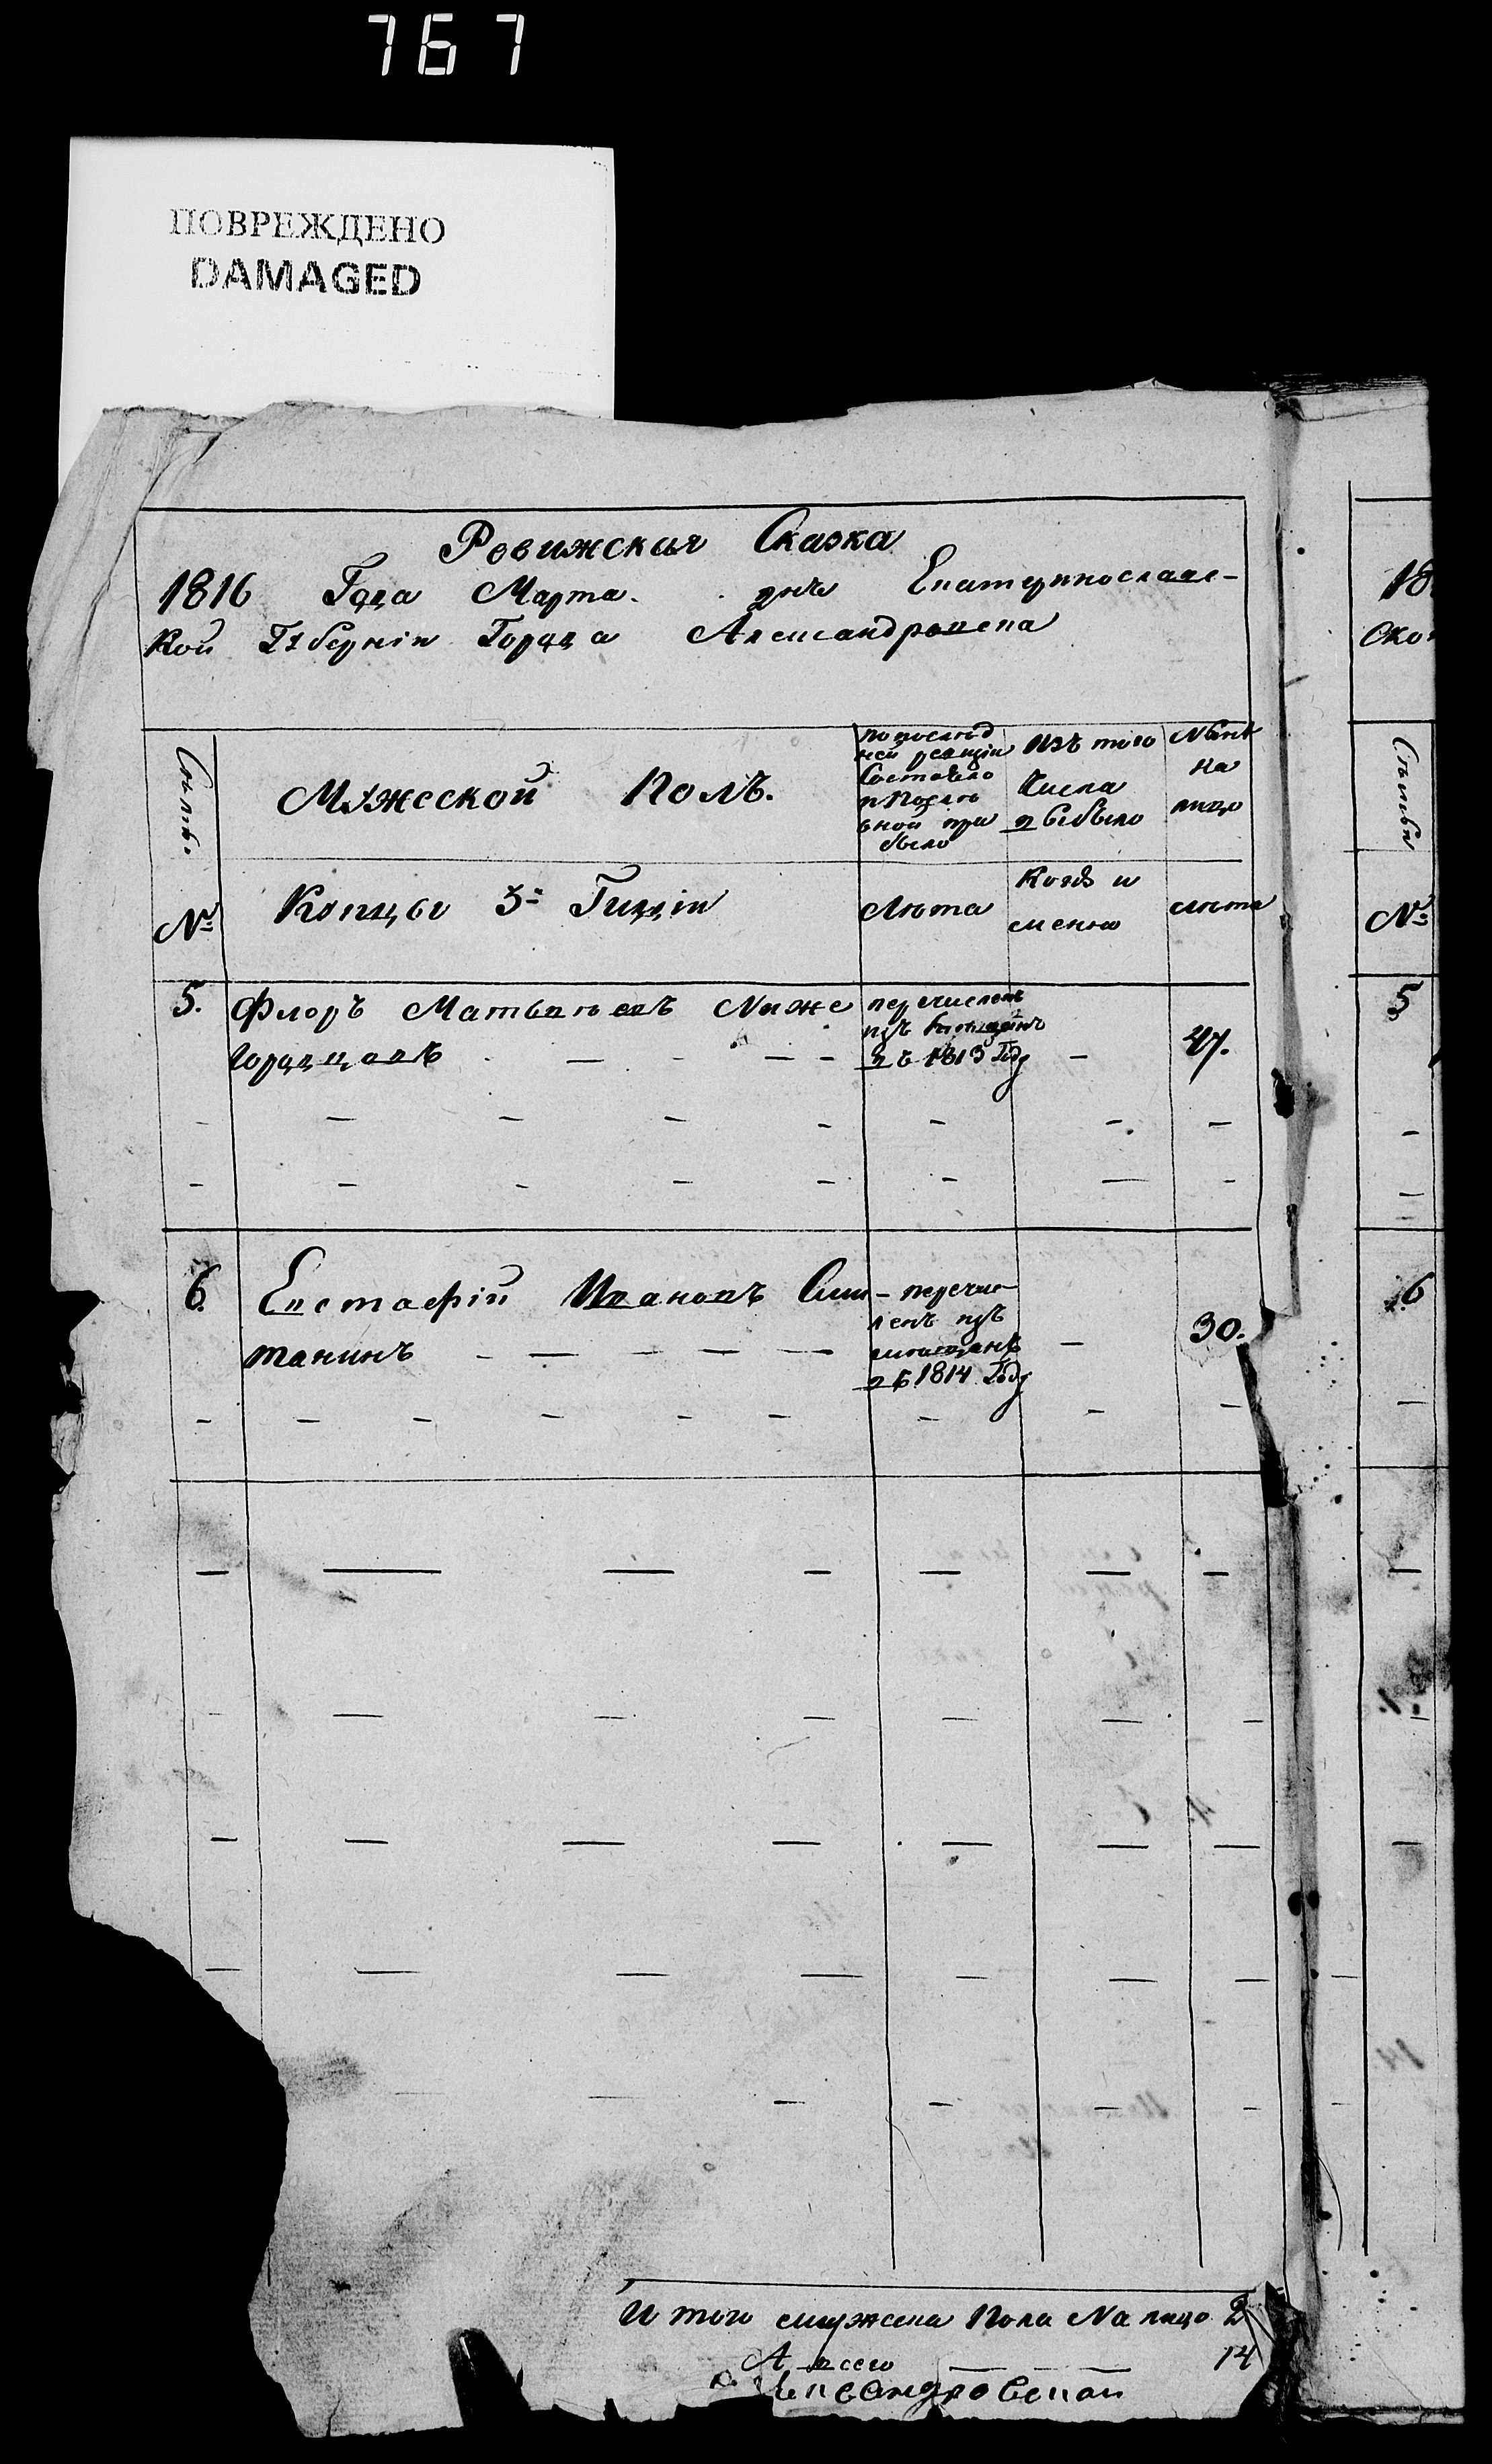 767
ПОВРЕЖДЕНО
DAMAGED
Ревижская Сказка
1816 Года Марта дня Екатеринославс-
кой Губернiи Города Александровска
Семьи
Мужеской Полъ.
по послед
ней ревизiи
Состояло
и После
оной при
было
Изъ того
Числа
выбыло
Ныне
на
лицо
№
Купцы 3й Гилдiи
Лѣта
Когда и
менно
лѣта
5. Флоръ Матвѣевъ Ниже
городцовъ
перечисленъ
изъ
въ 1813 Году
47.
6. Евстафiй Ивановъ Сим
танинъ
перечис
ленъ изъ
мѣщанъ
въ 1814 Году
30.
И того мужеска Пола На лицо 2
А всего 14
18
ско
Семьи
№
5
6